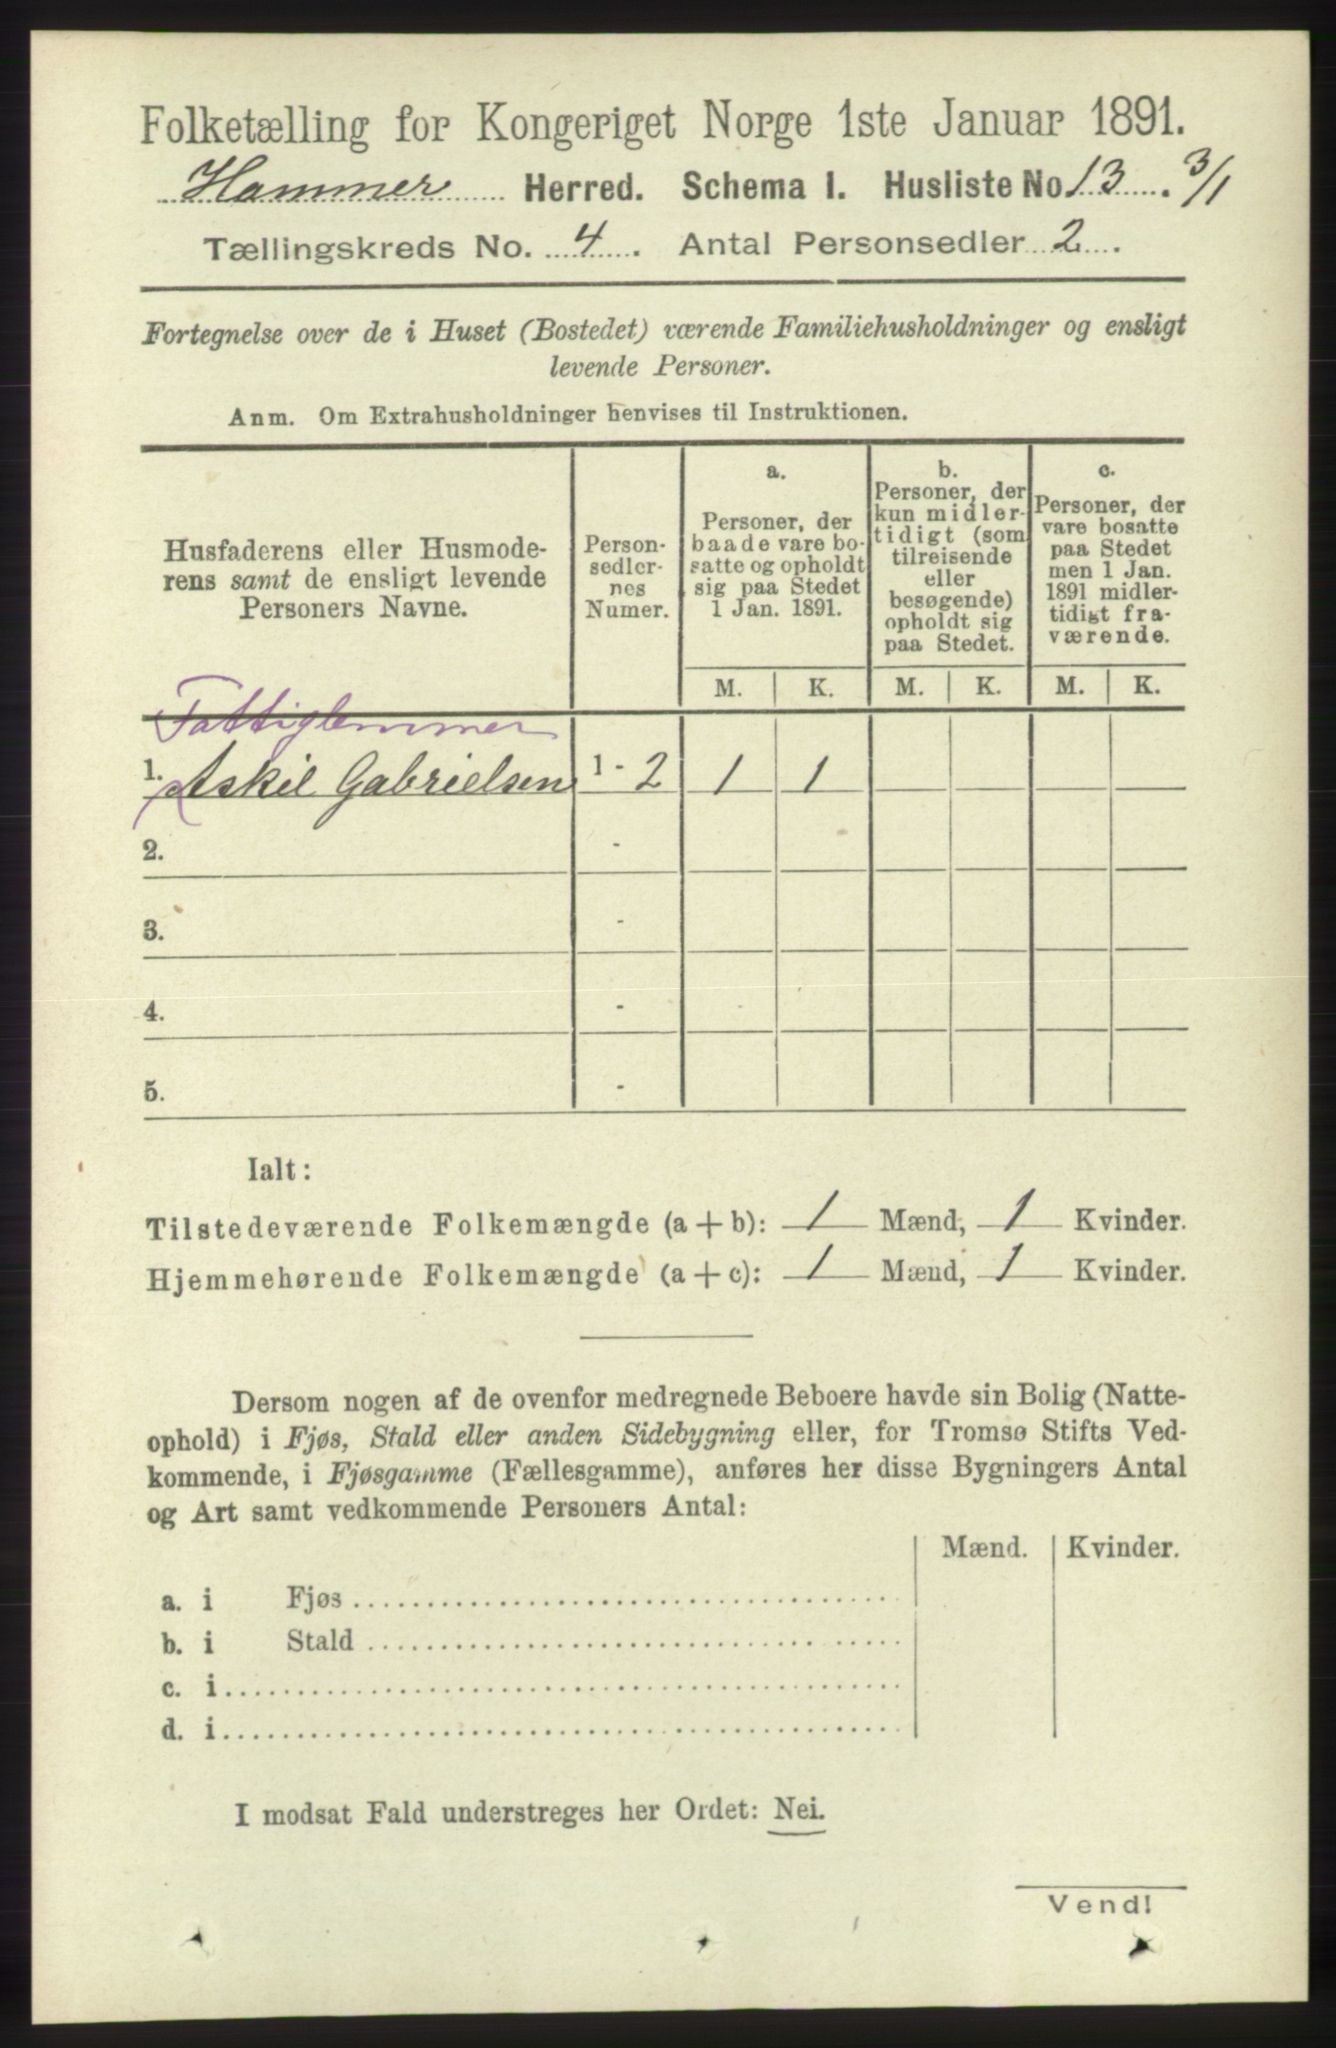 Folketælling for Kongeriget Norge 1ste Januar 1891.
Hammer Herred. Schema I. Husliste No 13. 3/1
Tællingskreds No. 4. Antal Personsedler 2.
Fortegnelse over de i Huset (Bostedet) værende Familiehusholdninger og ensligt
levende Personer.
Anm. Om Extrahusholdninger henvises til Instruktionen.
Husfaderens eller Husmode-
rens samt de ensligt levende
Personers Navne.
Person-
sedler-
nes
Numer.
a.
Personer, der
baade vare bo-
satte og opholdt
sig paa Stedet
1 Jan. 1891.
b.
Personer, der
kun midler-
tidigt (som
tilreisende
eller
besøgende)
opholdt sig
paa Stedet.
c.
Personer, der
vare bosatte
paa Stedet
men 1 Jan.
1891 midler-
tidigt fra-
værende.
M. K. M. K. M. K.
Fattiglemmer
1. Askil Gabrielsen 1 - 2 1 1
2. -
3. -
4. -
5. -
Ialt:
Tilstedeværende Folkemængde (a + b): 1 Mænd, 1 Kvinder.
Hjemmehørende Folkemængde (a + c): 1 Mænd, 1 Kvinder.
Dersom nogen af de ovenfor medregnede Beboere havde sin Bolig (Natte-
ophold) i Fjøs, Stald eller anden Sidebygning eller, for Tromsø Stifts Ved-
kommende, i Fjøsgamme (Fællesgamme), anføres her disse Bygningers Antal
og Art samt vedkommende Personers Antal:
Mænd. Kvinder.
a. i Fjøs
b. i Stald
c. i
d. i
I modsat Fald understreges her Ordet: Nei.
Vend!